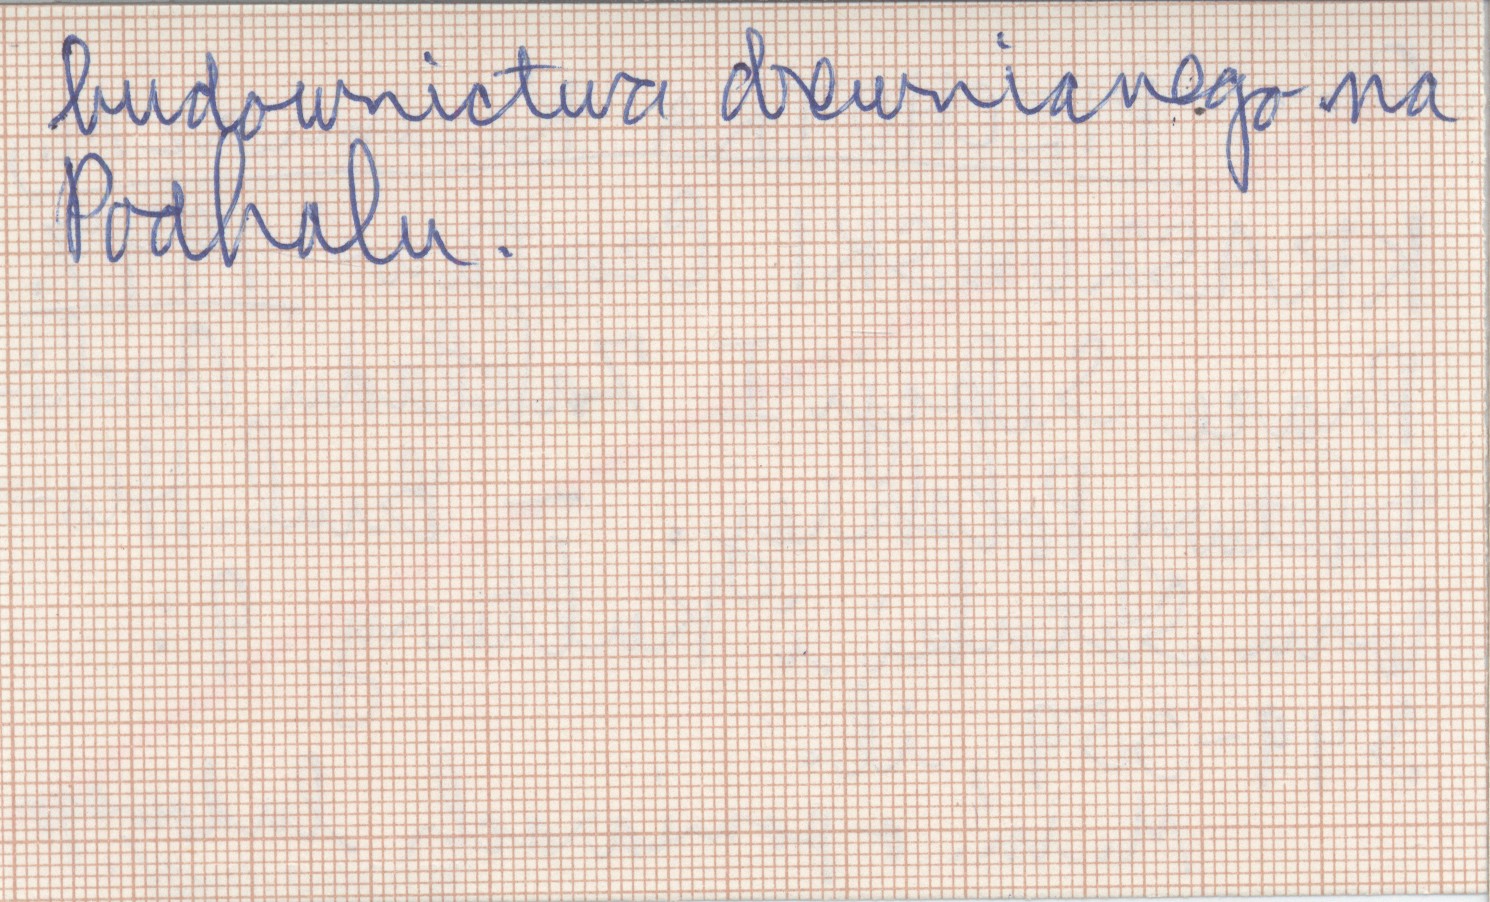 budownictwa drewnianego na
Podhalu.